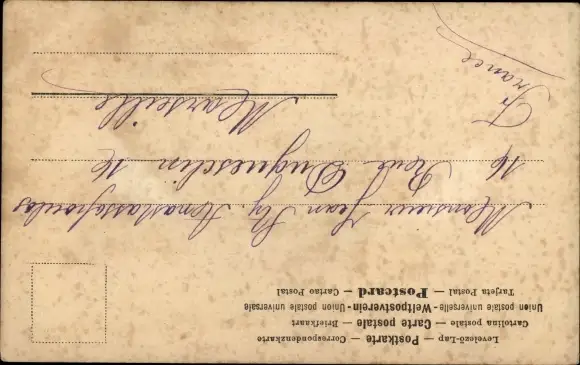 Levelező-Lap — Postkarte — Correspondenzkarte
Cartolina postale — Carte postale — Briefkaart
Union postale universelle - Weltpostverein - Union postale universale
Tarjeta Postal — Postcard — Cartao Postal
Monsieur Jean Anastassopoulos
16 Rue Duguesclin 16
Marseille
France